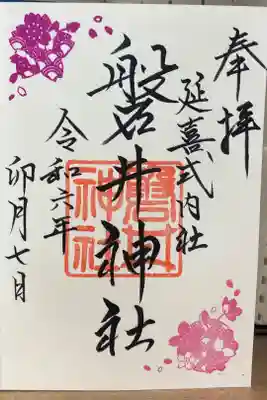 奉拝
延喜式内社
磐井神社
磐井神社
令和六年
卯月七日